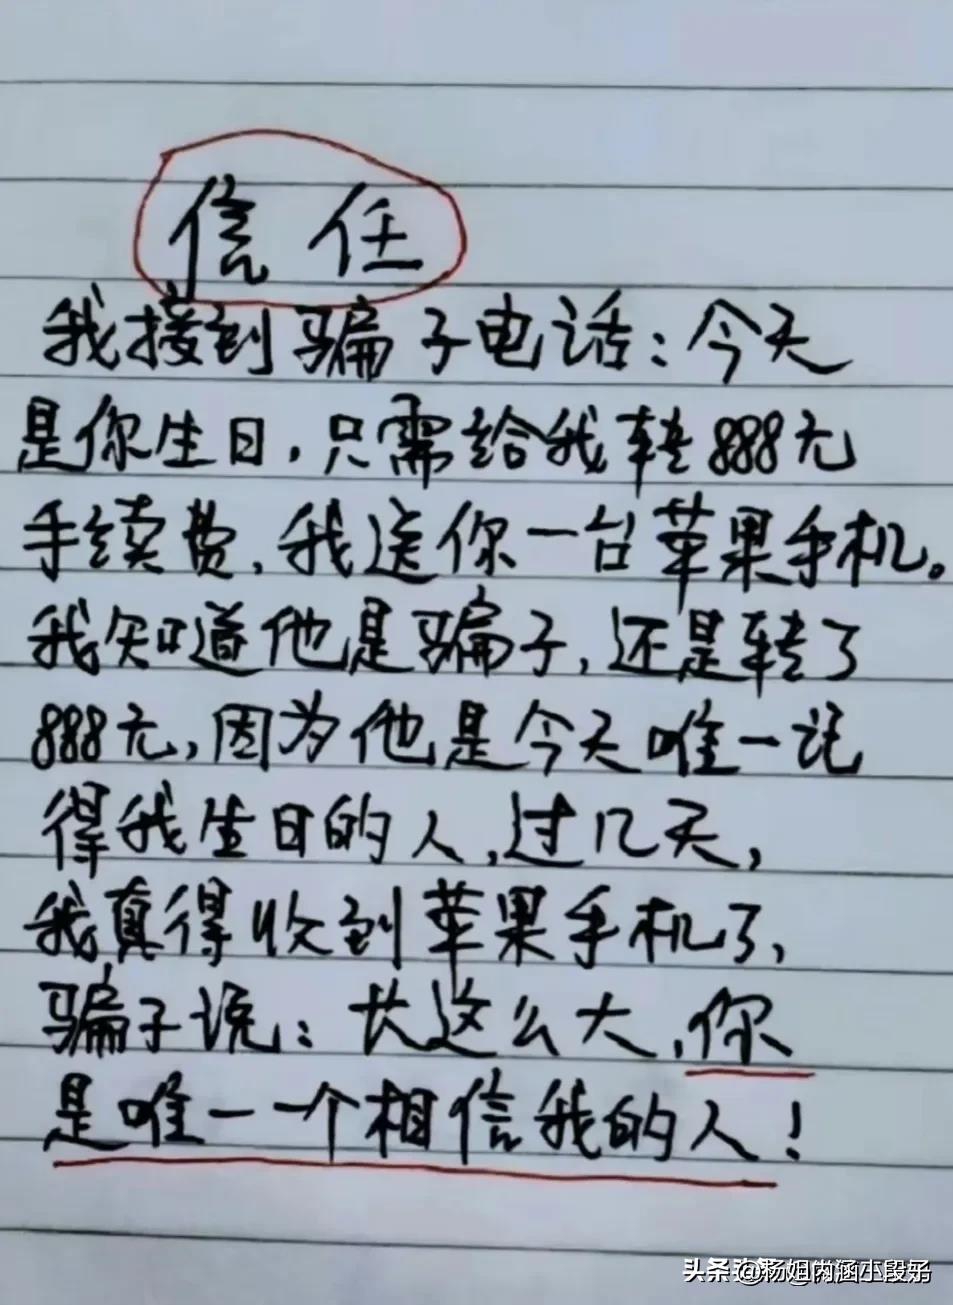 信任
我接到骗子电话：今天
是你生日，只需给我转888元
手续费，我送你一台苹果手机。
我知道他是骗子，还是转了
888元，因为他是今天唯一记
得我生日的人，过几天，
我真得收到苹果手机了，
骗子说：长这么大，你
是唯一一个相信我的人！
头条 @杨姐内涵小段子